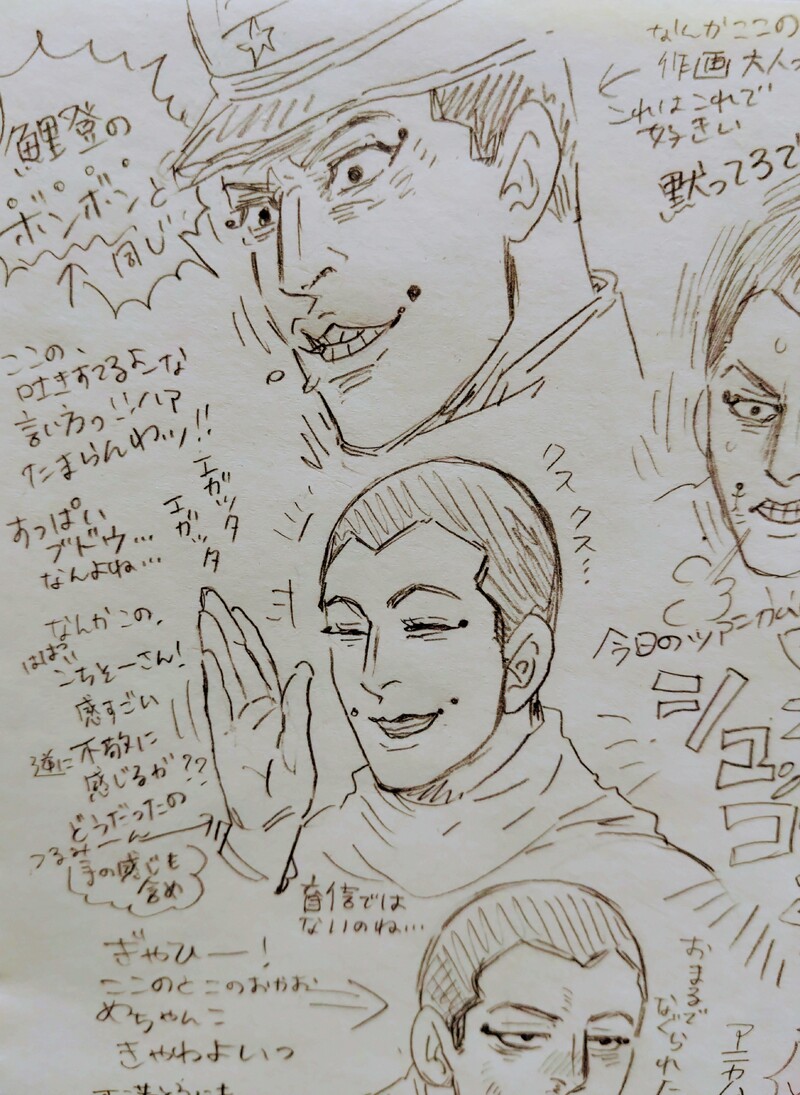 鯉登の
ボンボンと
↑同じ
なんかここの
作画大人っ
これはこれで
好きい
黙ってろで
ここの、
吐きすてるよーな
言い方っ!!ハア
たまらんわッ!!
エガッタ
エガッタ
おっぱい
ブドウ…
なんよね…
クスクス…
なんかこの、
はばっ
ごちそーさん!
感すごい
逆に不敬に
感じるが??
どうだったの
つるみーん
手の感じも
含め
今日のツアニがい
シュ
コ
盲信では
ないのね…
ぎゃひー!
ここのとこのおかお
めちゃんこ
きゃわよいっ
おまるで
なぐられた
アニカ